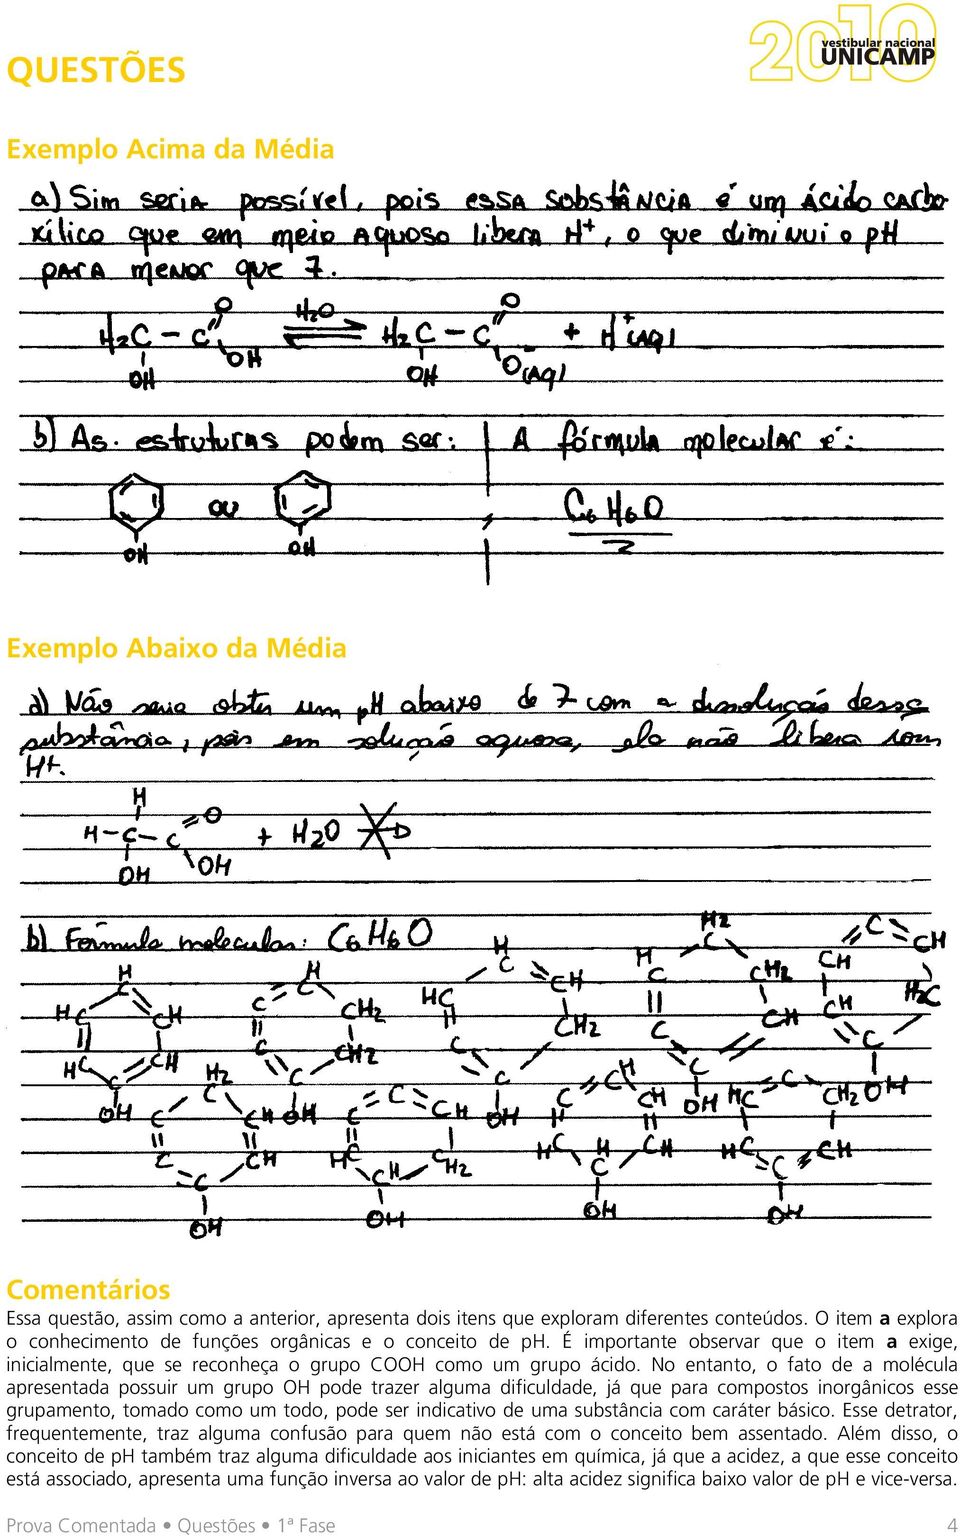 QUESTÕES
2010
vestibular nacional
UNICAMP
Exemplo Acima da Média
a) Sim seria possível, pois essa substância é um ácido carbo-
xílico que em meio aquoso libera H+, o que diminui o pH
para menor que 7.
H2C - C O OH OH H2O ⇌ H2C - C O O-(aq) OH + H+(aq)
b) As estruturas podem ser: A fórmula molecular é:
OH ou OH C6H6O
Exemplo Abaixo da Média
a) Não seria obter um pH abaixo de 7 com a dissolução dessa
substância, pois em solução aquosa, ela não libera íons
H+.
H
H-C-C O
OH OH + H2O
b) Fórmula molecular: C6H6O
Comentários
Essa questão, assim como a anterior, apresenta dois itens que exploram diferentes conteúdos. O item a explora
o conhecimento de funções orgânicas e o conceito de pH. É importante observar que o item a exige,
inicialmente, que se reconheça o grupo COOH como um grupo ácido. No entanto, o fato de a molécula
apresentada possuir um grupo OH pode trazer alguma dificuldade, já que para compostos inorgânicos esse
grupamento, tomado como um todo, pode ser indicativo de uma substância com caráter básico. Esse detrator,
frequentemente, traz alguma confusão para quem não está com o conceito bem assentado. Além disso, o
conceito de pH também traz alguma dificuldade aos iniciantes em química, já que a acidez, a que esse conceito
está associado, apresenta uma função inversa ao valor de pH: alta acidez significa baixo valor de pH e vice-versa.
Prova Comentada • Questões • 1ª Fase 4